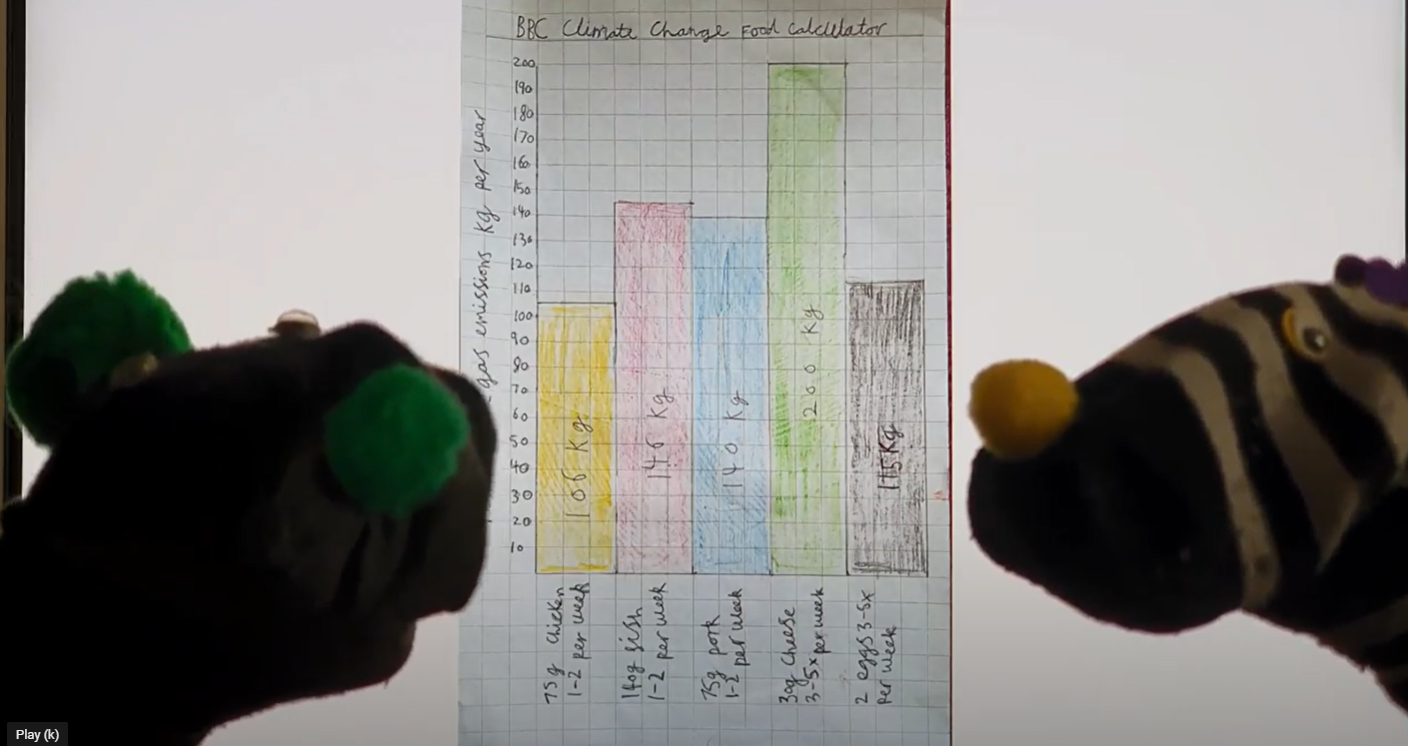 BBC Climate Change Food Calculator
gas emissions Kg per year
200
190
180
170
160
150
140
130
120
110
100
90
80
70
60
50
40
30
20
10
106 Kg
146 Kg
140 Kg
200 Kg
115Kg
75g chicken
1-2 per week
140g fish
1-2 per week
75g pork
1-2 per week
30g cheese
3-5x per week
2 eggs 3-5x
per week
Play (k)